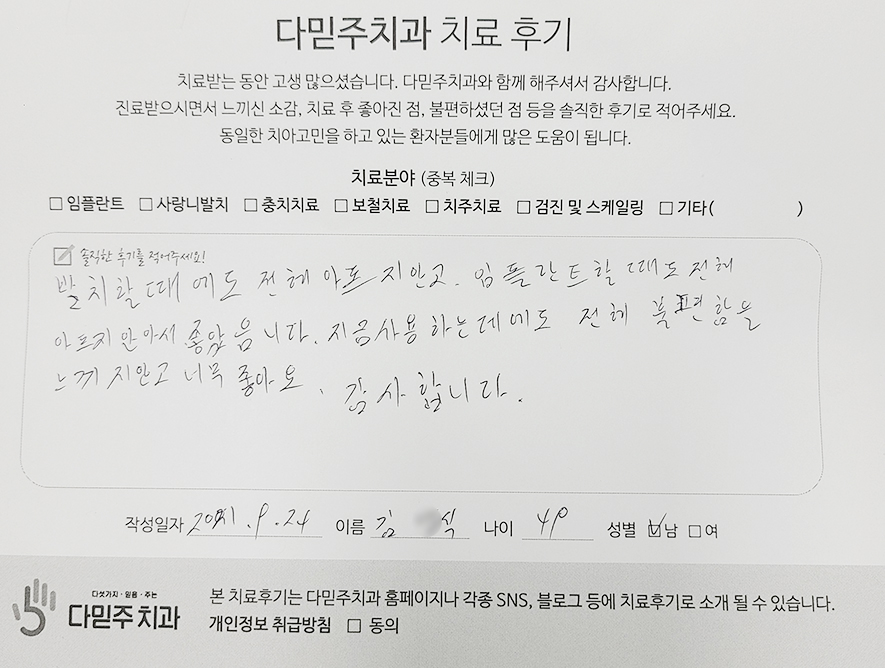 다믿주치과 치료 후기
치료받는 동안 고생 많으셨습니다. 다믿주치과와 함께 해주셔서 감사합니다.
진료받으시면서 느끼신 소감, 치료 후 좋아진 점, 불편하셨던 점 등을 솔직한 후기로 적어주세요.
동일한 치아고민을 하고 있는 환자분들에게 많은 도움이 됩니다.
치료분야 (중복 체크)
□ 임플란트 □ 사랑니발치 □ 충치치료 □ 보철치료 □ 치주치료 □ 검진 및 스케일링 □ 기타( )
솔직한 후기를 적어주세요!
발치할때에도 전헤 아프지안고. 임플란트할때도전헤
아프지안아서 좋았읍니다. 지금사용하는데에도 전헤 불편함을
느끼지안고 너무 좋아요. 감사합니다.
작성일자 2021.9.24 이름 김 식 나이 49 성별 ☑남 □여
다섯가지·믿음·주는
다믿주치과
본 치료후기는 다믿주치과 홈페이지나 각종 SNS, 블로그 등에 치료후기로 소개 될 수 있습니다.
개인정보 취급방침 □ 동의